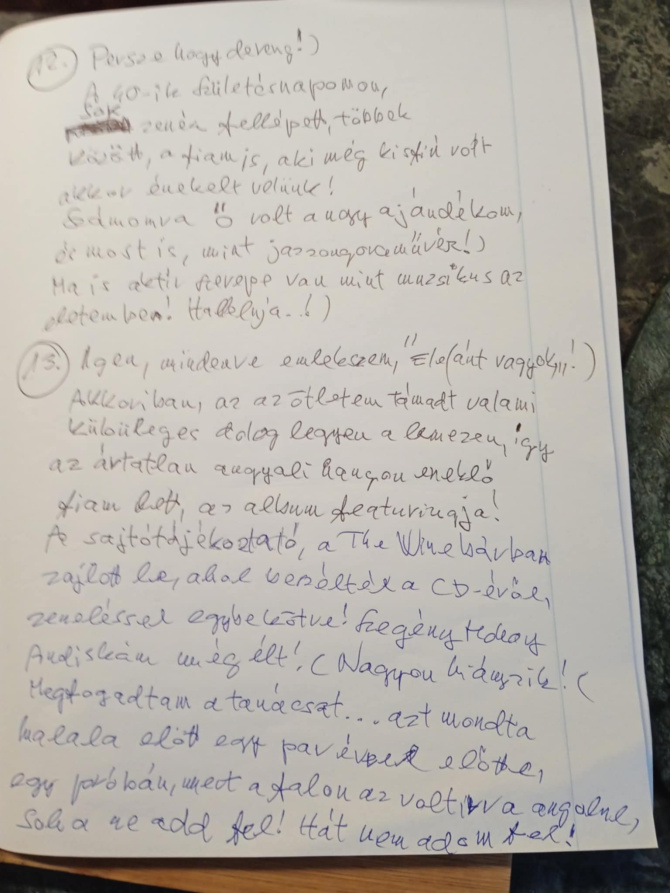 12. Persze hogy dereng!)
A 40-ik születésnapomon,
sok
zenén fellépett, többek
között, a fiam is, aki még kisfiú volt
akkor énekelt velünk!
Sámomra Ő volt a nagy ajándékom,
és most is, mint jazzongoraművész!)
Ma is aktív szerepe van mint muzsikus az
életemben! Halleluja..!)
13. Igen, mindenre emlékszem, "Elefánt vagyok,,!)
Akkoriban, az az ötletem támadt valami
különleges dolog legyen a lemezen, így
az ártatlan angyali hangon éneklő
fiam lett, az album featuringja!
A sajtótájékoztató, a The Winebárban
zajlott le, ahol meséltek a CD-éről,
zenéléssel egybekötve! Szegény
Andiskám még élt! (Nagyon hiányzik! (
Megfogadtam a tanácsát... azt mondta
halála előtt egy pár évvel előtte,
egy próbán, mert a falon az volt írva angolul,
Soha ne add fel! Hát nem adom fel!